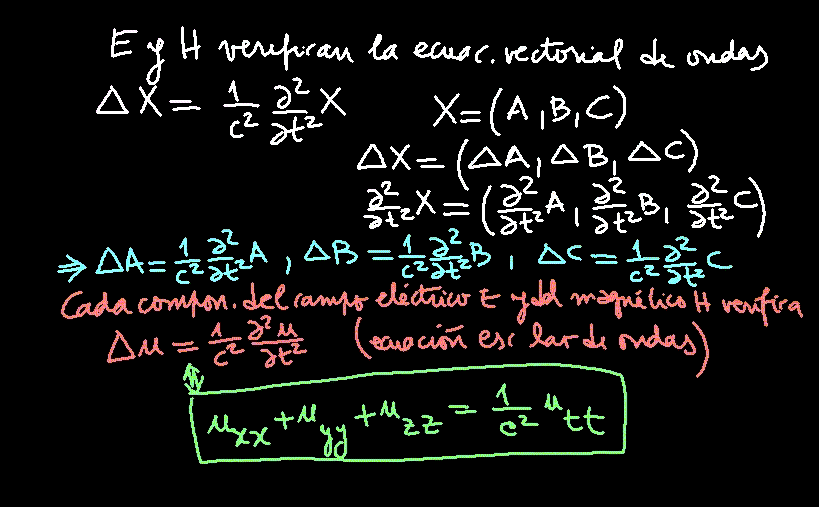 E y H verifican la ecuac. vectorial de ondas
ΔX = 1/c² ∂²/∂t² X    X = (A, B, C)
ΔX = (ΔA, ΔB, ΔC)
∂²/∂t² X = (∂²/∂t² A, ∂²/∂t² B, ∂²/∂t² C)
⇒ ΔA = 1/c² ∂²/∂t² A, ΔB = 1/c² ∂²/∂t² B, ΔC = 1/c² ∂²/∂t² C
Cada compon. del campo eléctrico E y del magnético H verifica
Δu = 1/c² ∂²u/∂t²    (ecuación esc lar de ondas)
⇕
u_xx + u_yy + u_zz = 1/c² u_tt